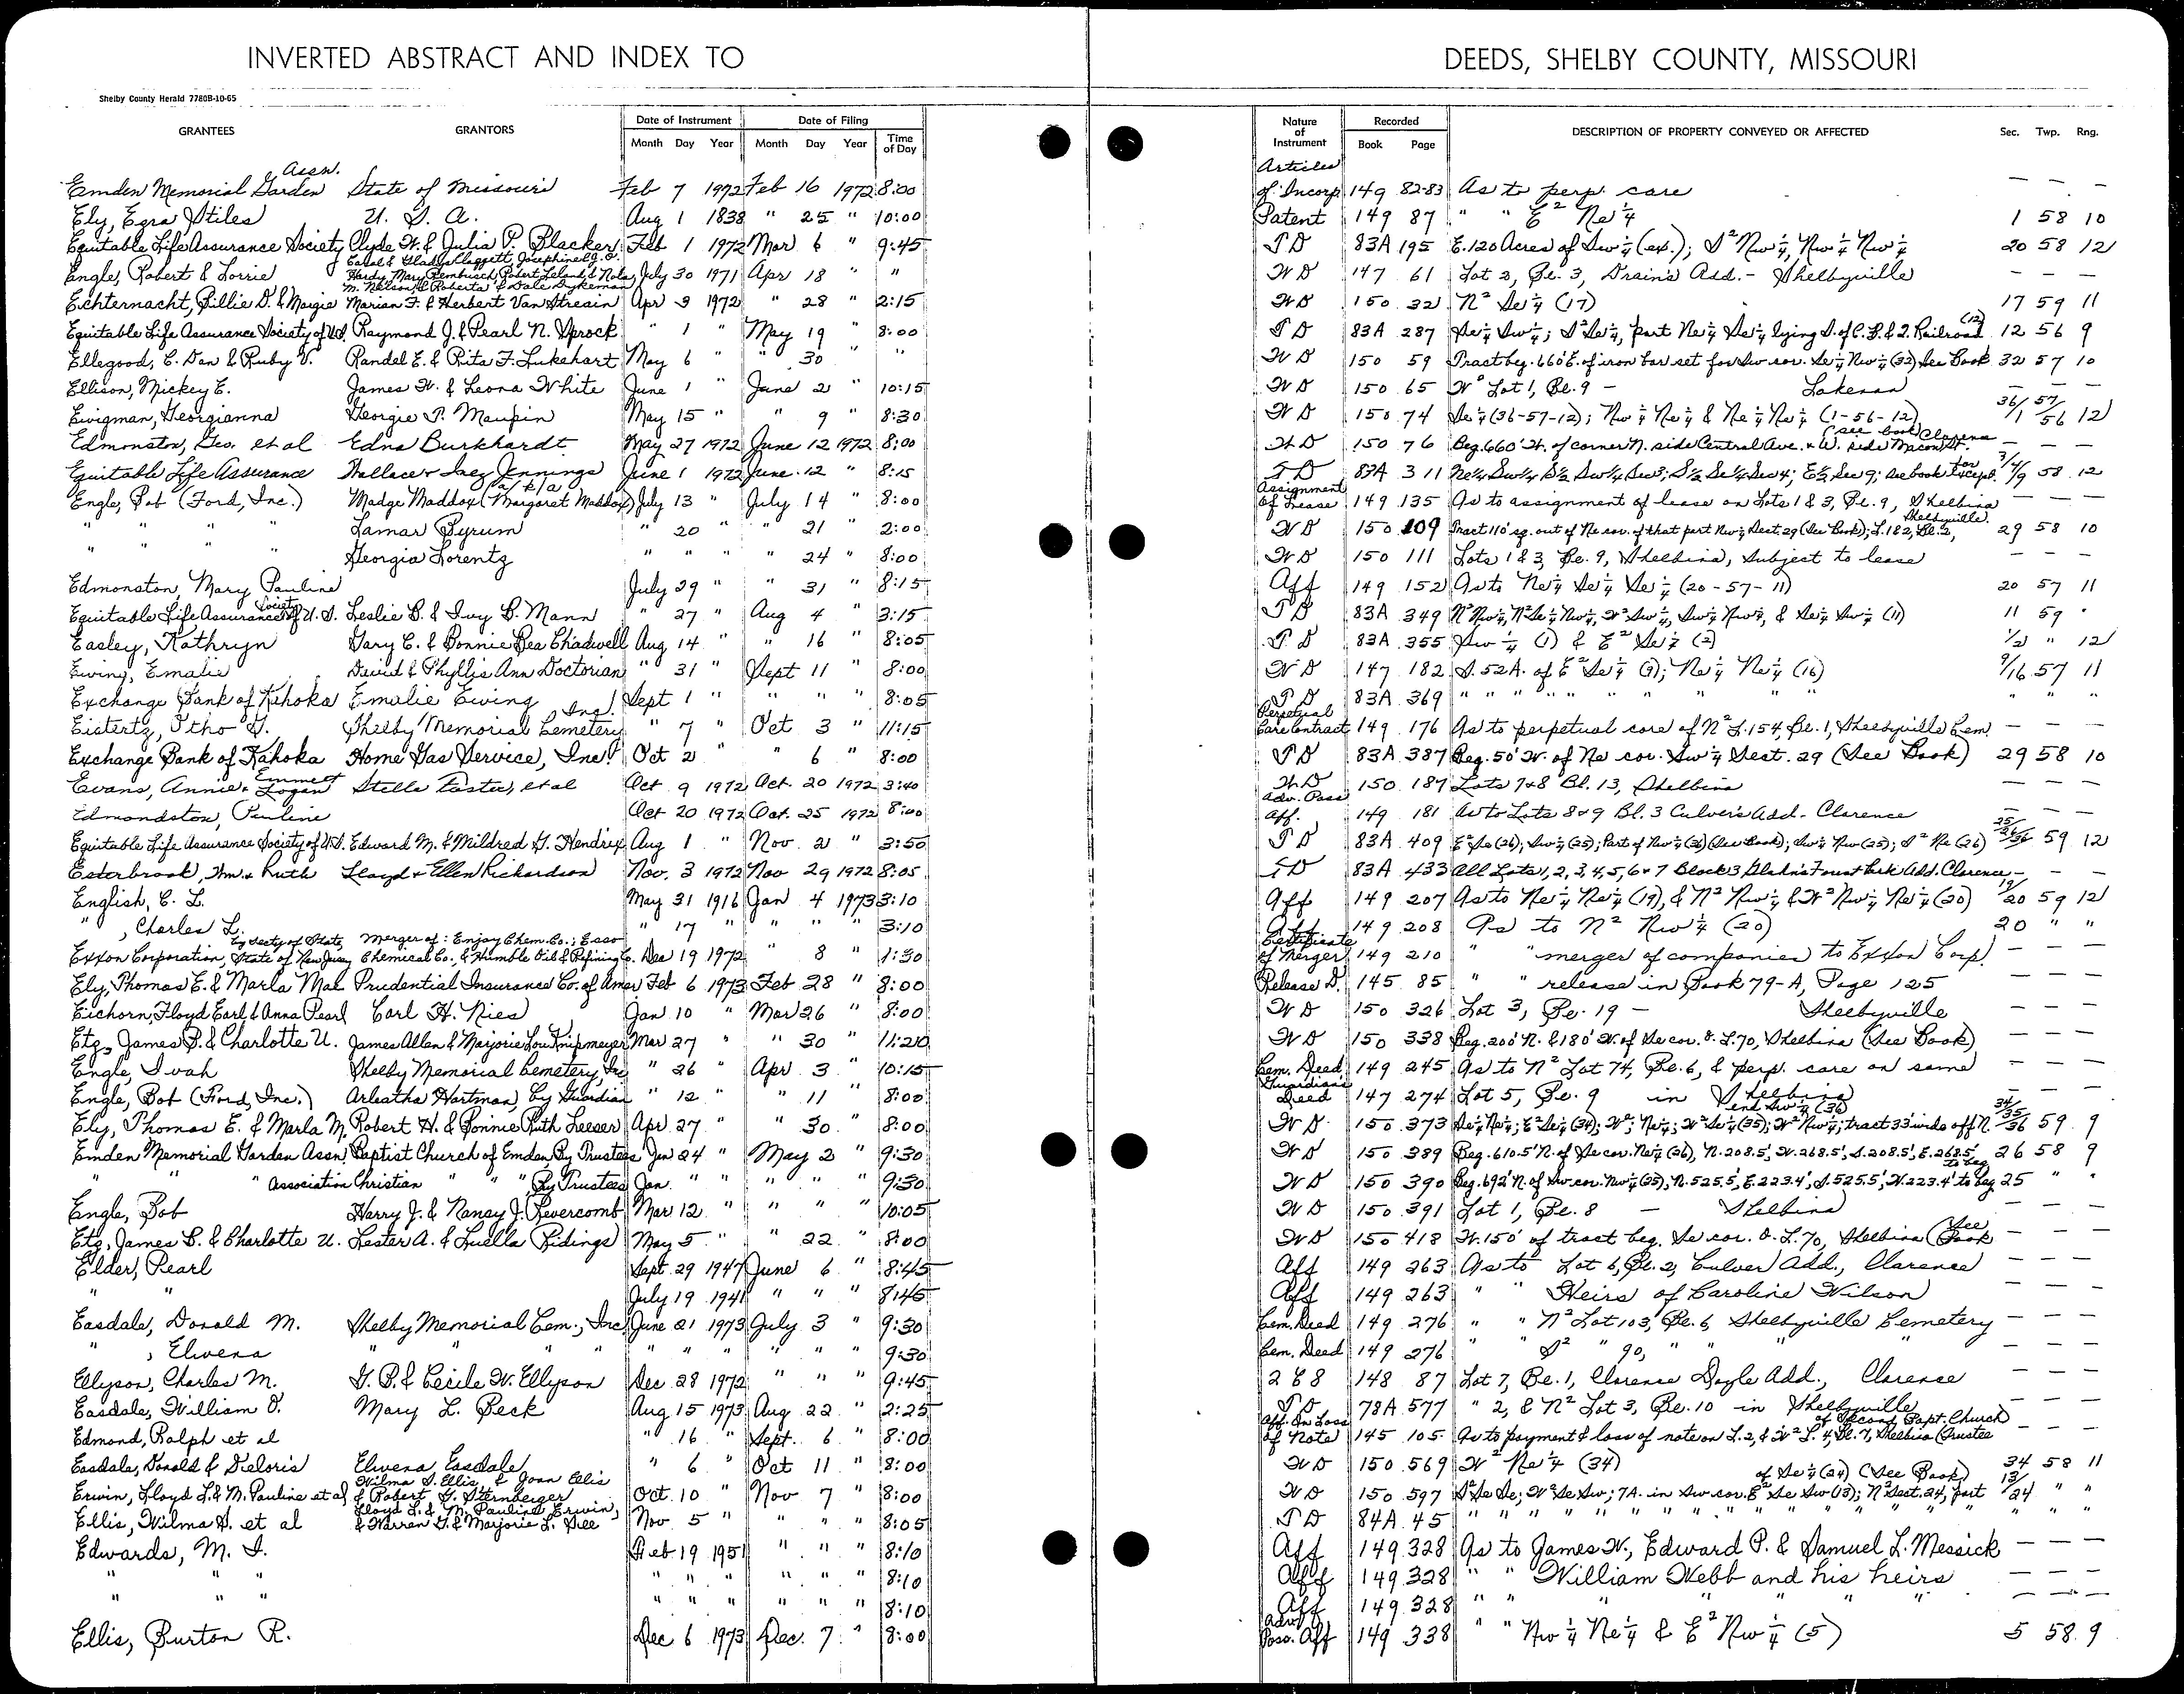 INVERTED ABSTRACT AND INDEX TO DEEDS, SHELBY COUNTY, MISSOURI
Shelby County Herald 7780B-10-65
GRANTEES GRANTORS Date of Instrument Date of Filing Nature of Instrument Recorded DESCRIPTION OF PROPERTY CONVEYED OR AFFECTED Sec. Twp. Rng.
Month Day Year Month Day Year Time of Day Book Page
Emden Memorial Garden Assn. State of Missouri Feb 7 1972 Feb 16 1972 8:00 Articles of Incorp 149 82-83 As to perp. care — — —
Ely, Ezra Stiles U. S. A. Aug 1 1838 " 25 " 10:00 Patent 149 87 " " E² Ne¼ 1 58 10
Equitable Life Assurance Society Clyde W. & Julia P. Blacker Feb 1 1972 Mar 6 " 9:45 TD 83A 195 E. 120 Acres of Sw¼ (ex.); S² Nw¼, Nw¼ Nw¼ 20 58 12
Engle, Robert & Lorrie Carol & Gladys Claggett, Josephine & J. O. Hardy, Mary Rembusch, Robert, Leland & Nola M. Nelson, & Roberta & Dale Dykeman July 30 1971 Apr 18 " " WD 147 61 Lot 2, Bl. 3, Drain's Add. - Shelbyville — — —
Echternacht, Billie D. & Margie Marian F. & Herbert Van Streain Apr 3 1972 " 28 " 2:15 WD 150 32 N² Se¼ (17) 17 59 11
Equitable Life Assurance Society of U.S. Raymond J. & Pearl N. Sprock " 1 " May 19 " 8:00 TD 83A 287 Se¼ Sw¼; S² Se¼, part Ne¼ Se¼ lying S. of C. B. & Q. Railroad (12) 12 56 9
Ellegood, C. Dan & Ruby V. Randel E. & Rita F. Lukehart May 6 " " 30 " " WD 150 59 Tract beg. 660' E. of iron bar set for Sw cor. Se¼ Nw¼ (32) See Book 32 57 10
Ellison, Mickey E. James W. & Leona White June 1 " June 2 " 10:15 WD 150 65 W² Lot 1, Bl. 9 - Lakenan — — —
Ewigman, Georgianna Georgie P. Maupin May 15 " " 9 " 8:30 WD 150 74 Se¼ (36-57-12); Nw¼ Ne¼ & Ne¼ Ne¼ (1-56-12) 36/1 57/56 12
Edmonston, Geo. et al Edna Burkhardt May 27 1972 June 12 1972 8:00 WD 150 76 Beg. 660' W. of corner N. side Central Ave. & W. side Macon St. (see book) Clarence — — —
Equitable Life Assurance Wallace & Inez Jennings June 1 1972 June 12 " 8:15 TD 83A 311 Ne¼ Sw¼, S½ Sw¼ Sec 3; S½ Se¼ Sec 4; E½ Sec 9; see book for except. 3/4/9 58 12
Engle, Bob (Ford, Inc.) Madge Maddox (a/k/a Margaret Maddox) July 13 " July 14 " 8:00 Assignment of Lease 149 135 As to assignment of lease on Lots 1 & 3, Bl. 9, Shelbina — — —
" " " Lamar Byrum " 20 " " 21 " 2:00 WD 150 109 Tract 110' sq. out of Ne cor. of that part Nw¼ Sect. 29 (See Book); L. 1 & 2, Bl. 2, Shelbyville 29 58 10
" " " Georgia Lorentz " " " " 24 " 8:00 WD 150 111 Lots 1 & 3, Bl. 9, Shelbina, subject to lease — — —
Edmonston, Mary Pauline July 29 " " 31 " 8:15 Aff 149 152 As to Ne¼ Se¼ Se¼ (20-57-11) 20 57 11
Equitable Life Assurance Society of U.S. Leslie B. & Ivy B. Mann " 27 " Aug 4 " 3:15 TD 83A 349 N² Nw¼, N² Se¼ Nw¼, W² Sw¼, Sw¼ Nw¼, & Se¼ Sw¼ (11) 11 59 "
Easley, Kathryn Gary C. & Bonnie Bea Chadwell Aug 14 " " 16 " 8:05 TD 83A 355 Sw¼ (1) & E² Se¼ (2) 1/2 " 12
Ewing, Emalie David & Phyllis Ann Doctorian " 31 " Sept 11 " 8:00 WD 147 182 S. 52A. of E² Se¼ (9); Ne¼ Ne¼ (16) 9/16 57 11
Exchange Bank of Kahoka Emalie Ewing Sept 1 " " " " 8:05 TD 83A 369 " " " " " " " " " " "
Eistertz, Otho G. Shelby Memorial Cemetery, Inc. " 7 " Oct 3 " 11:15 Perpetual Care Contract 149 176 As to perpetual care of N² L. 154, Bl. 1, Shelbyville Cem. — — —
Exchange Bank of Kahoka Home Gas Service, Inc. Oct 2 " " 6 " 8:00 TD 83A 387 Beg. 50' W. of Ne cor. Sw¼ Sect. 29 (See Book) 29 58 10
Evans, Annie & Emmett Logan Stella Foster, et al Oct 9 1972 Oct. 20 1972 3:40 WD 150 187 Lots 7 & 8 Bl. 13, Shelbina — — —
Edmondston, Pauline Oct 20 1972 Oct. 25 1972 8:00 Adv. Poss. Aff. 149 181 As to Lots 8 & 9 Bl. 3 Culver's Add. - Clarence — — —
Equitable Life Assurance Society of U.S. Edward M. & Mildred G. Hendrix Aug 1 " Nov. 2 " 3:50 TD 83A 409 E² Se (26); Sw¼ (25); Part of Nw¼ (36) (See Book); Sw¼ Nw (25); S² Ne (26) 25/26/36 59 12
Esterbrook, Wm. & Ruth Lloyd & Ellen Richardson Nov. 3 1972 Nov 29 1972 8:05 TD 83A 433 All Lots 1, 2, 3, 4, 5, 6 & 7 Block 3 Glahn's Forest Park Add. Clarence - — —
English, C. L. May 31 1916 Jan 4 1973 3:10 Aff 149 207 As to Ne¼ Ne¼ (19), & N² Nw¼ & W² Nw¼ Ne¼ (20) 19/20 59 12
" , Charles L. " 17 " " " " 3:10 Aff 149 208 As to N² Nw¼ (20) 20 " "
Exxon Corporation, by Secty of State, State of New Jersey Merger of: Enjay Chem. Co.; Esso Chemical Co., & Humble Oil & Refining Co. Dec 19 1972 " 8 " 1:30 Certificate of Merger 149 210 " " merger of companies to Exxon Corp. — — —
Ely, Thomas E. & Marla Mae Prudential Insurance Co. of Amer Feb 6 1973 Feb 28 " 8:00 Release D. 145 85 " " release in Book 79-A, Page 125 — — —
Eichorn, Floyd Earl & Anna Pearl Carl H. Nies Jan 10 " Mar 26 " 8:00 WD 150 326 Lot 3, Bl. 19 - Shelbyville — — —
Etz, James B. & Charlotte U. James Allen & Marjorie Lou Knipmeyer Mar 27 " " 30 " 11:20 WD 150 338 Beg. 200' N. & 180' W. of Se cor. O. L. 70, Shelbina (See Book) — — —
Engle, Ivah Shelby Memorial Cemetery, Inc " 26 " Apr 3 " 10:15 Cem. Deed 149 245 As to N² Lot 74, Bl. 6, & perp. care on same — — —
Engle, Bob (Ford, Inc.) Arleatha Hartman, by Guardian " 12 " " 11 " 8:00 Guardian's Deed 147 274 Lot 5, Bl. 9 in Shelbina — — —
Ely, Thomas E. & Marla M. Robert H. & Bonnie Ruth Leeser Apr 27 " " 30 " 8:00 WD 150 373 Se¼ Ne¼; E² Se¼ (34); W²; Ne¼; W² Se¼ (35); W² Nw¼; tract 33' wide off N. end Sw¼ (36) 34/35/36 59 9
Emden Memorial Garden Assn. Baptist Church of Emden, By Trustees Jan 24 " May 2 " 9:30 WD 150 389 Beg. 610.5' N. of Se cor. Ne¼ (26), N. 208.5', W. 268.5', S. 208.5', E. 268.5' to beg. 26 58 9
" " " Association Christian " " " By Trustees Jan. " " " " " 9:30 WD 150 390 Beg. 692' N. of Sw cor. Nw¼ (25), N. 525.5', E. 223.4', S. 525.5', W. 223.4' to beg 25 " "
Engle, Bob Harry J. & Nancy J. Revercomb Mar 12 " " " " 10:05 WD 150 391 Lot 1, Bl. 8 - Shelbina — — —
Etz, James B. & Charlotte U. Lester A. & Luella Ridings May 5 " " 22 " 8:00 WD 150 418 W. 150' of tract beg. Se cor. O. L. 70, Shelbina (See Book — — —
Elder, Pearl Sept 29 1947 June 6 " 8:45 Aff 149 263 As to Lot 6, Bl. 2, Culver Add., Clarence — — —
" " July 19 1941 " " " 8:45 Aff 149 263 " " Heirs of Caroline Wilson — — —
Easdale, Donald M. Shelby Memorial Cem., Inc June 21 1973 July 3 " 9:30 Cem. Deed 149 276 " " N² Lot 103, Bl. 6, Shelbyville Cemetery — — —
" , Elwena " " " " " " " " " " 9:30 Cem. Deed 149 276 " " S² " 90, " " " " — — —
Ellyson, Charles M. G. P. & Cecile W. Ellyson Dec 28 1972 " " " 9:45 QCD 148 87 Lot 7, Bl. 1, Clarence Doyle Add., Clarence — — —
Easdale, William O. Mary L. Beck Aug 15 1973 Aug 22 " 2:25 TD 78A 577 " 2, & N² Lot 3, Bl. 10 in Shelbyville — — —
Edmond, Ralph et al " 16 " Sept. 6 " 8:00 Aff. On Loss of Note 145 105 As to payment & loss of note on L. 2, & W² L. 4, Bl. 7, Shelbina (Trustee of Second Bapt. Church) — — —
Easdale, Donald & Deloris Elwena Easdale " 6 " Oct 11 " 8:00 WD 150 569 W² Ne¼ (34) 34 58 11
Erwin, Lloyd L. & M. Pauline et al Wilma S. Ellis, & Joan Ellis & Robert G. Sternberger Oct. 10 " Nov 7 " 8:00 WD 150 597 S² Se Se; W² Se Sw; 7A. in Sw cor. E² Se Sw (13); N² Sect. 24, part of Se¼ (24) (See Book) 13/24 " "
Ellis, Wilma S. et al Lloyd L. & M. Pauline Erwin, & Warren G. & Marjorie L. See Nov 5 " " " " 8:05 TD 84A 45 " " " " " " " " " " " " " " " "
Edwards, M. I. Feb 19 1951 " " " 8:10 Aff 149 328 As to James W., Edward P. & Samuel L. Messick — — —
" " " " " " " " " 8:10 Aff 149 328 " " William Webb and his heirs — — —
" " " " " " " " " 8:10 Aff 149 328 " " " " " " " — — —
Ellis, Burton R. Dec 6 1973 Dec. 7 " 8:00 Adv. Poss. Aff 149 338 " " Nw¼ Ne¼ & E² Nw¼ (5) 5 58 9